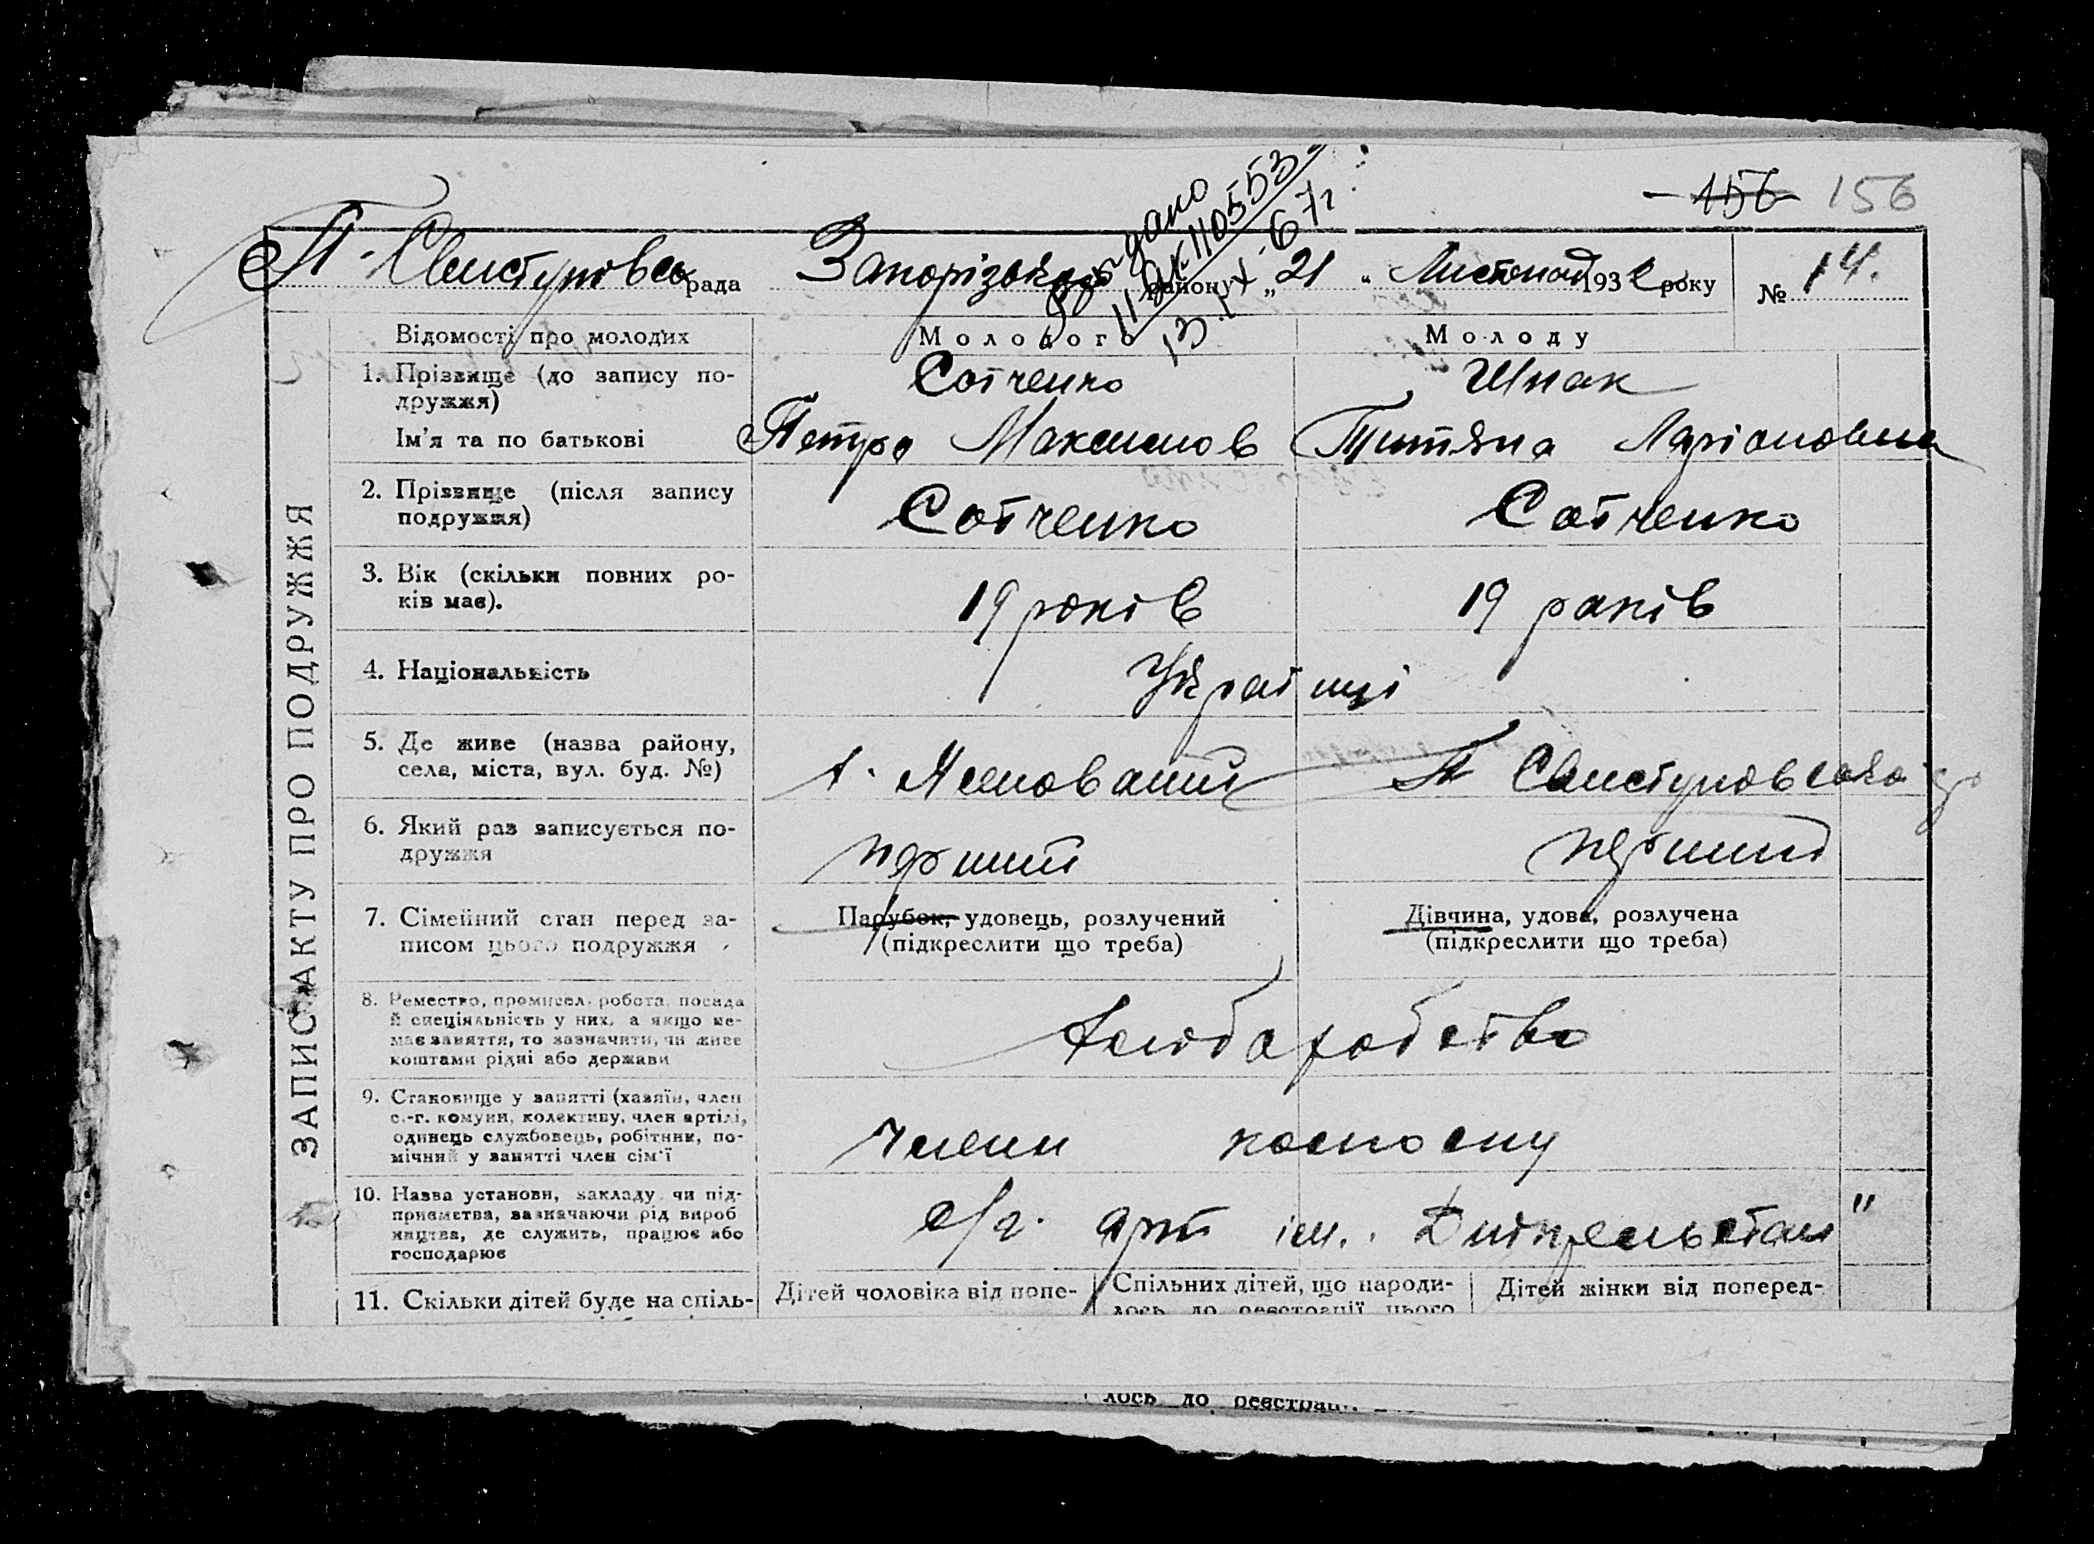 156 156
П. Свистунівсь рада Запорізької району „ 21 “ Листопад 193 року № 14.
Видано
II ЯК 110553
13. IX-67г
ЗАПИС АКТУ ПРО ПОДРУЖЖЯ
Відомості про молодих Молодого Молоду
1. Прізвище (до запису по- Сотченко Шпак
дружжя)
Ім’я та по батькові Петро Максимов Титяна Ларіоновна
2. Прізвище (після запису Сотченко Сотченко
подружжя)
3. Вік (скільки повних ро- 19 років 19 років
ків має).
4. Національність Українці
5. Де живе (назва району, П Свистуновсько
села, міста, вул. буд. №)
6. Який раз записується по- перший перший
дружжя
7. Сімейний стан перед за- Парубок, удовець, розлучений Дівчина, удова, розлучена
писом цього подружжя (підкреслити що треба) (підкреслити що треба)
8. Ремество, промисел, робота, посада
й спеціяльність у них, а якщо не- хліборобство
має заняття, то зазначити, чи живе
коштами рідні або держави
9. Становище у занятті (хазяїн, член
с.-г. комуни, колективу, член артілі, члени колгоспу
одинець службовець, робітник, по-
мічний у занятті член сім’ї
10. Назва установи, закладу чи під-
приємства, зазначаючи рід вироб с/г. арт ім. Дніпрельстан"
ництва, де служить, працює або
господарює
11. Скільки дітей буде на спіль- Дітей чоловіка від попе- Спільних дітей, що народи- Дітей жінки від поперед-
лось до реєстрації цього
лось до реєстрац